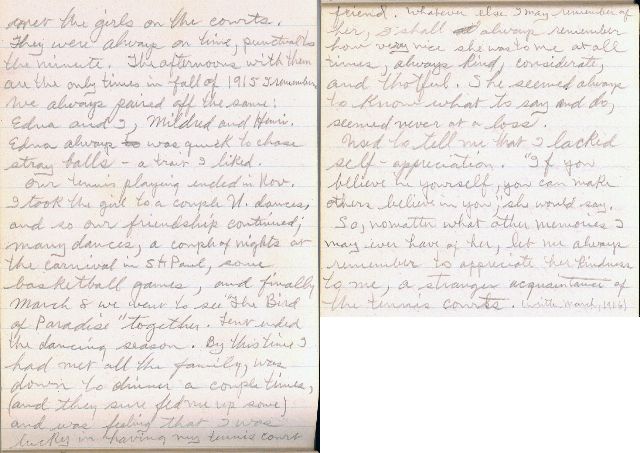 met the girls on the courts.
They were always on time, punctual to
the minute. The afternoons with them
are the only times in fall of 1915 I remember.
We always paired off the same:
Edna and I, Mildred and Henri.
Edna always to was quick to chase
stray balls - a trait I liked.
Our tennis playing ended in Nov.
I took the girl to a couple U. dances,
and so our friendship continued;
many dances, a couple of nights at
the carnival in St Paul, some
basketball games, and finally
March 8 we went to see "The Bird
of Paradise" together. Lent ended
the dancing season. By this time I
had met all the family, was
down to dinner a couple times,
(and they sure fed me up some)
and was feeling that I was
lucky in having my tennis court
friend. Whatever else I may remember of
her, I shall always remember
how very nice she was to me at all
times, always kind, considerate,
and thotful. She seemed always
to know what to say and do,
seemed never at a loss.
Used to tell me that I lacked
self-appreciation. "If you
believe in yourself, you can make
others believe in you," she would say.
So, no matter what other memories I
may ever have of her, let me always
remember to appreciate her kindness
to me, a stranger acquaintance of
the tennis courts. (written March, 1916)